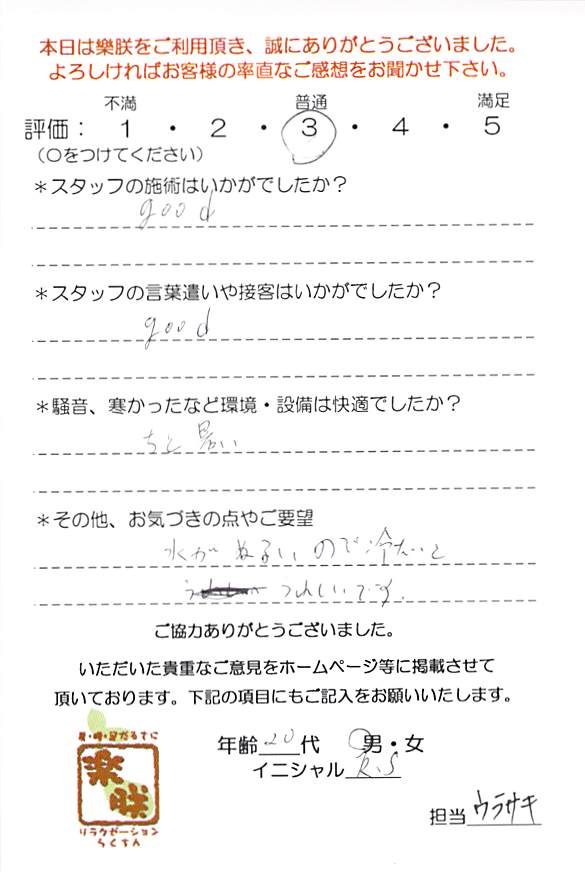 本日は樂朕をご利用頂き、誠にありがとうございました。
よろしければお客様の率直なご感想をお聞かせ下さい。
不満 普通 満足
評価： 1 ・ 2 ・ 3 ・ 4 ・ 5
（○をつけてください）
＊スタッフの施術はいかがでしたか？
good
＊スタッフの言葉遣いや接客はいかがでしたか？
good
＊騒音、寒かったなど環境・設備は快適でしたか？
ちと暑い
＊その他、お気づきの点やご要望
水がぬるいので冷たいと
うれしいです。
ご協力ありがとうございました。
いただいた貴重なご意見をホームページ等に掲載させて
頂いております。下記の項目にもご記入をお願いいたします。
年齢 20 代 男・女
イニシャル R.S
楽朕
リラクゼーション
らくちん
担当 ウラサキ